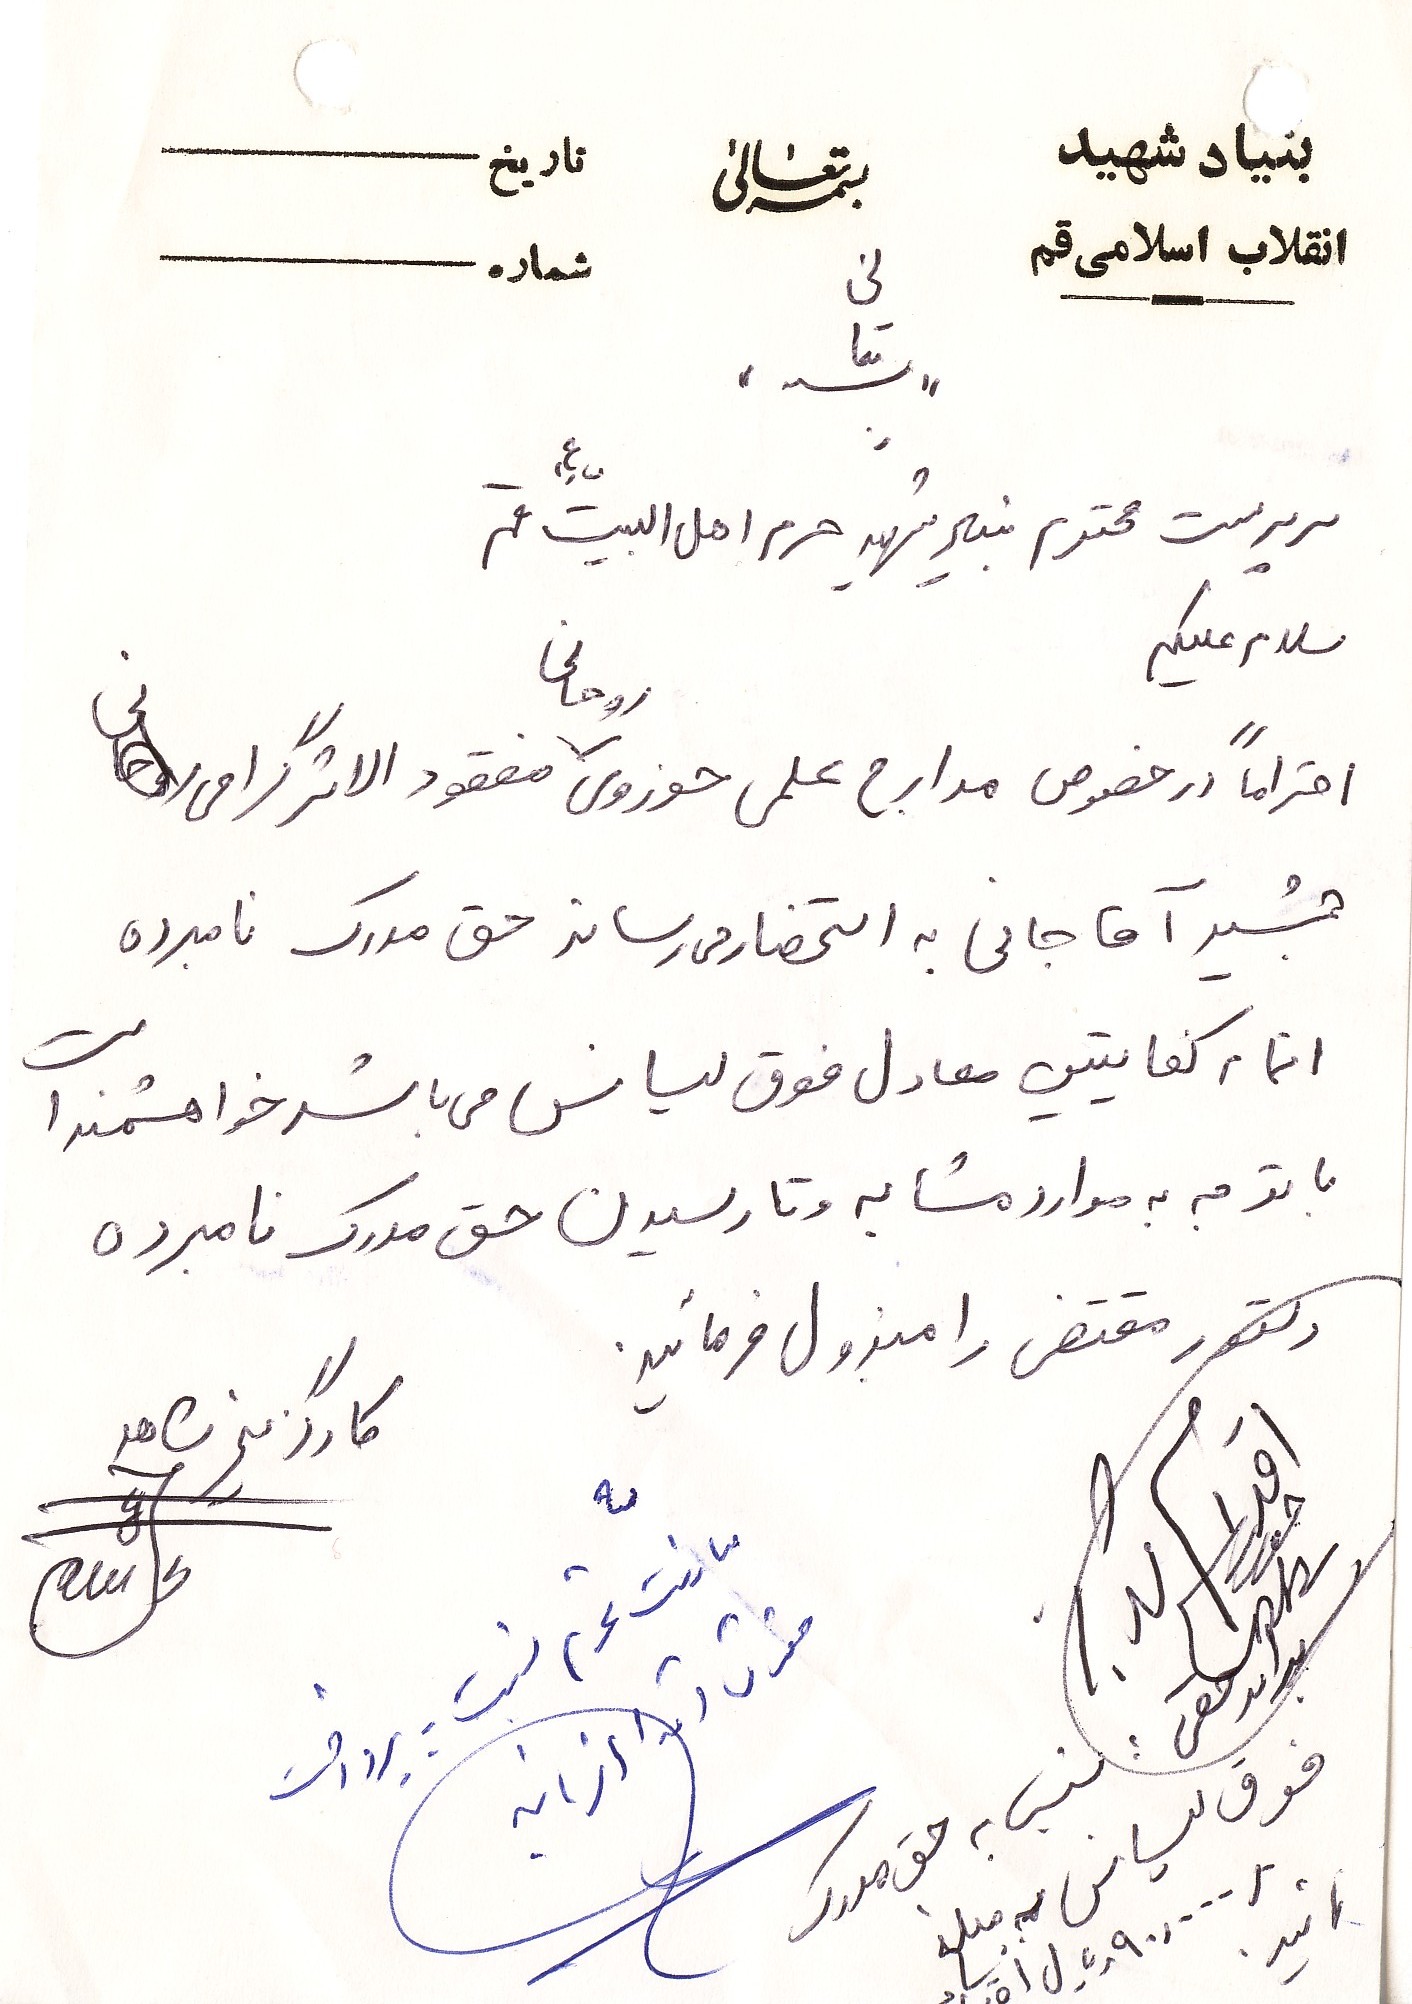 بنیاد شهید
انقلاب اسلامی قم
بسمه تعالی
تاریخ
شماره
"بسمه تعالی"
سرپرست محترم بنیاد شهید حرم اهل البیت قم
سلام علیکم
احتراماً در خصوص مدارج علمی حوزوی روحانی مفقود الاثر گرامی
جمشید آقاجانی به استحضار می‌رساند حق مدرک نامبرده
کفایتین معادل فوق لیسانس می‌باشد خواهشمند است
با توجه به موارد مشابه و تا رسیدن حق مدرک نامبرده
دستور مقتضی را مبذول فرمائید.
کارگزینی شاهد
اقدام
نسبت به حق مدرک
فوق لیسانس به مبلغ
۹۰٫۰۰۰ ریال
معاونت محترم
نسبت به پرداخت